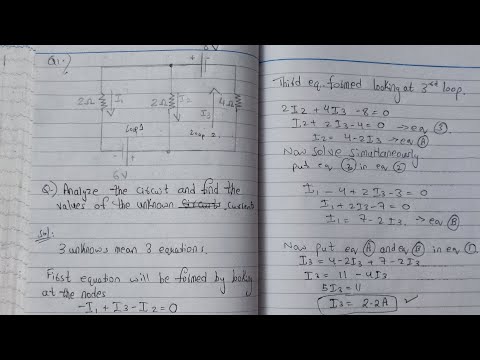 Q1.)
8V
2Ω
I1
2Ω
I2
I3
4Ω
Loop 1
Loop 2
6V
Q.) Analyze the circuit and find the
values of the unknown currents.
Sol:
3 unknowns mean 3 equations.
First equation will be formed by looking
at the nodes
-I1 + I3 - I2 = 0
Third eq. formed looking at 3rd loop.
2I2 + 4I3 - 8 = 0
I2 + 2I3 - 4 = 0 → eq ③
I2 = 4 - 2I3 → eq Ⓐ
Now solve simultaneously
put eq ③ in eq ②
I1 - 4 + 2I3 - 3 = 0
I1 + 2I3 - 7 = 0
I1 = 7 - 2I3 → eq Ⓑ
Now put eq Ⓐ and eq Ⓑ in eq ①
I3 = 4 - 2I3 + 7 - 2I3
I3 = 11 - 4I3
5I3 = 11
I3 = 2.2A ✓